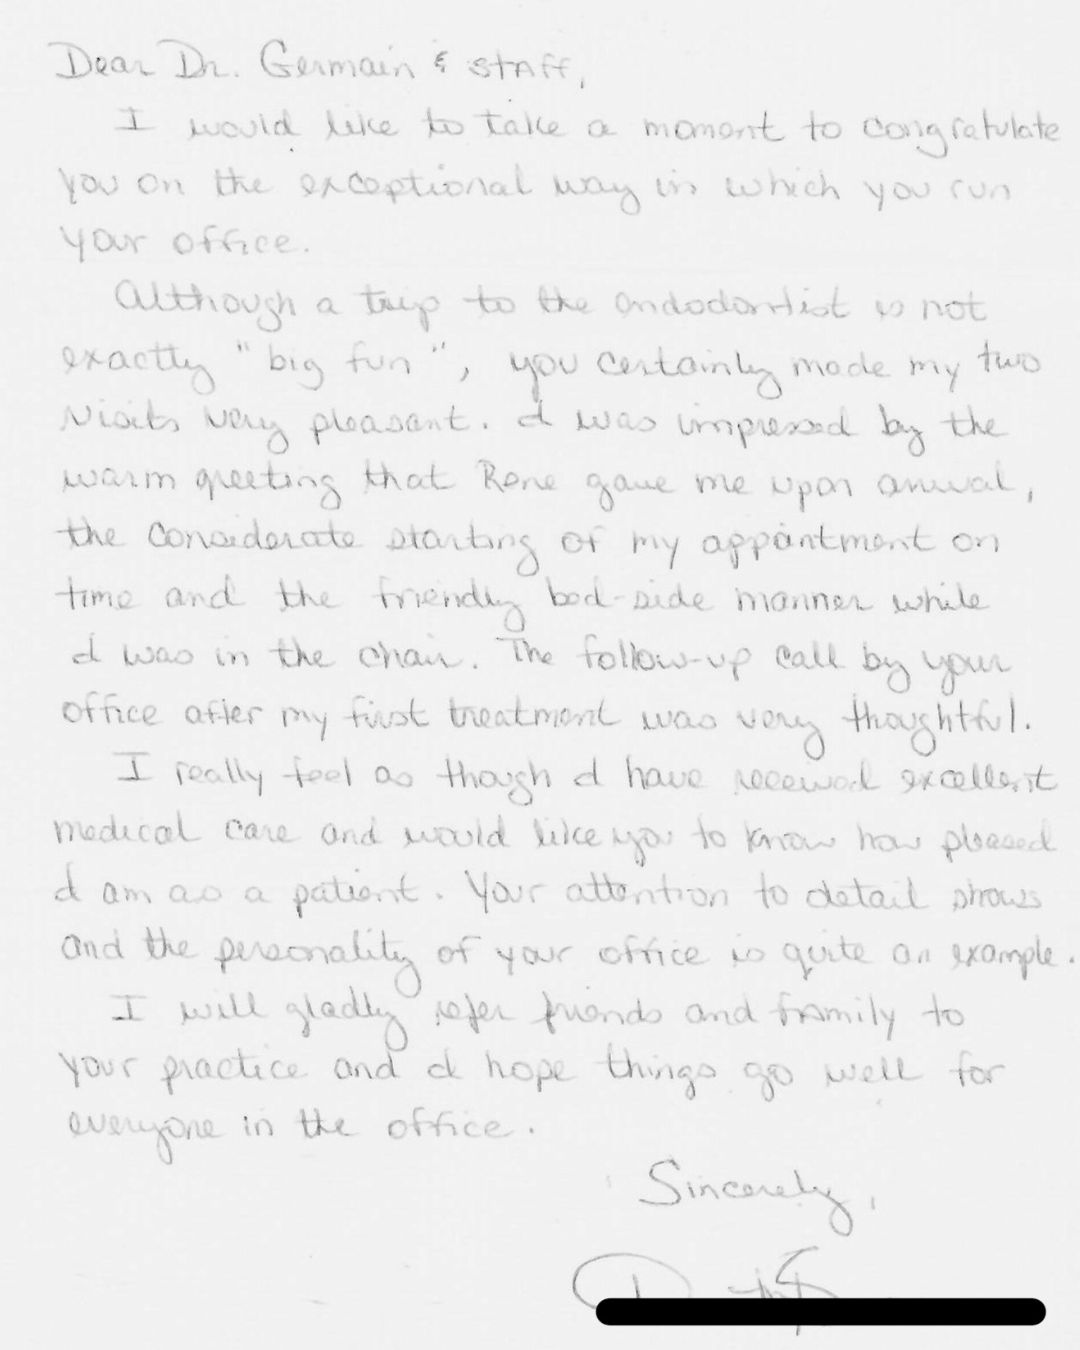 Dear Dr. Germain & staff,
I would like to take a moment to congratulate
you on the exceptional way in which you run
your office.
Although a trip to the endodontist is not
exactly "big fun", you certainly made my two
visits very pleasant. I was impressed by the
warm greeting that Rene gave me upon arrival,
the considerate starting of my appointment on
time and the friendly bed-side manner while
I was in the chair. The follow-up call by your
office after my first treatment was very thoughtful.
I really feel as though I have received excellent
medical care and would like you to know how pleased
I am as a patient. Your attention to detail shows
and the personality of your office is quite an example.
I will gladly refer friends and family to
your practice and I hope things go well for
everyone in the office.
Sincerely,